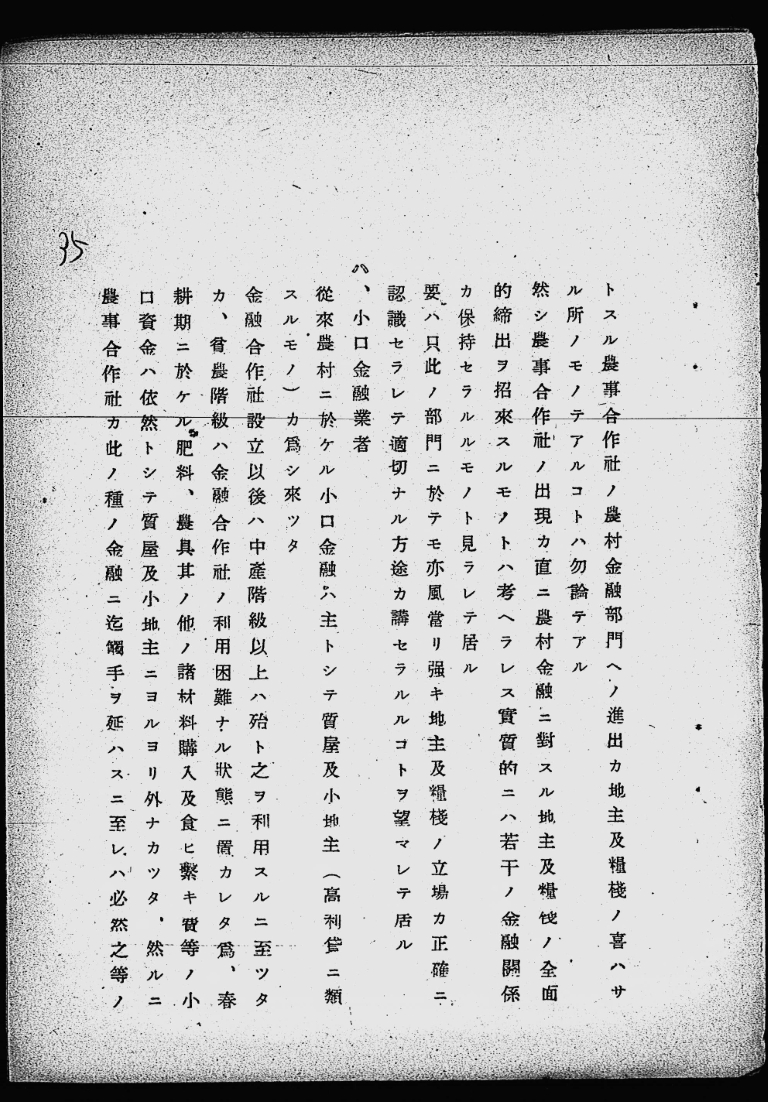 トスル農事合作社ノ農村金融部門ヘノ進出カ地主及糧棧ノ喜ハサ
ル所ノモノテアルコトハ勿論テアル
然シ農事合作社ノ出現カ直ニ農村金融ニ對スル地主及糧棧ノ全面
的締出ヲ招來スルモノトハ考ヘラレス實質的ニハ若干ノ金融關係
カ保持セラルルモノト見ラレテ居ル
要ハ只此ノ部門ニ於テモ亦風當リ强キ地主及糧棧ノ立場カ正確ニ
認識セラレテ適切ナル方途カ講セラルルコトヲ望マレテ居ル
ハ、小口金融業者
從來農村ニ於ケル小口金融ハ主トシテ質屋及小地主（高利貸ニ類
スルモノ）カ爲シ來ツタ
金融合作社設立以後ハ中產階級以上ハ殆ト之ヲ利用スルニ至ツタ
カ、貧農階級ハ金融合作社ノ利用困難ナル狀態ニ置カレタ爲、春
耕期ニ於ケル肥料、農具其ノ他ノ諸材料購入及食ヒ繫キ資等ノ小
口資金ハ依然トシテ質屋及小地主ニヨルヨリ外ナカツタ、然ルニ
農事合作社カ此ノ種ノ金融ニ迄觸手ヲ延ハスニ至レハ必然之等ノ
35